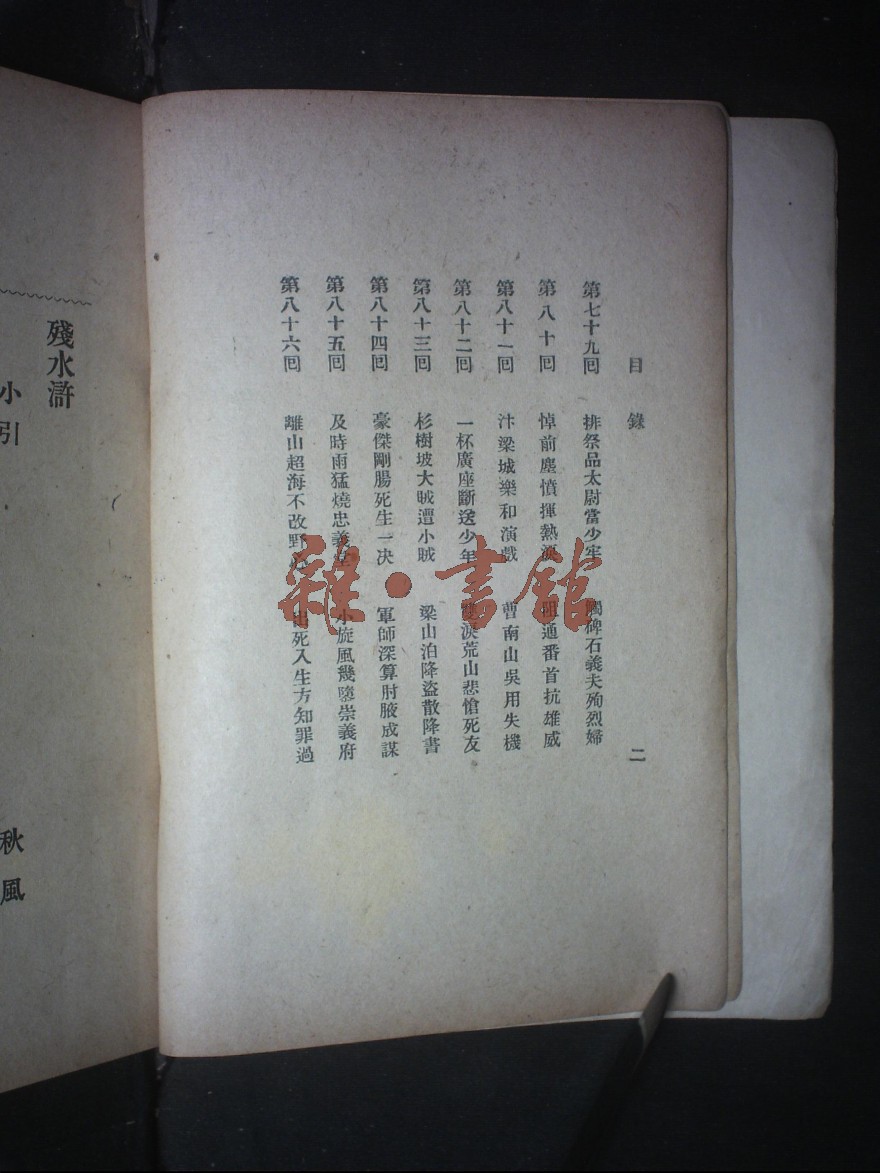 目錄 二
第七十九囘 排祭品太尉當少牢 觸碑石義夫殉烈婦
第八十囘 悼前塵憤揮熱淚 通番首抗雄威
第八十一囘 汴梁城樂和演戲 曹南山吳用失機
第八十二囘 一杯廣座斷送少年 淚荒山悲愴死友
第八十三囘 杉樹坡大賊遭小賊 梁山泊降盜散降書
第八十四囘 豪傑剛腸死生一决 軍師深算肘腋成謀
第八十五囘 及時雨猛燒忠義堂 小旋風幾墮崇義府
第八十六囘 離山超海不改野心 出死入生方知罪過
殘水滸
小引
秋風
雜·書館